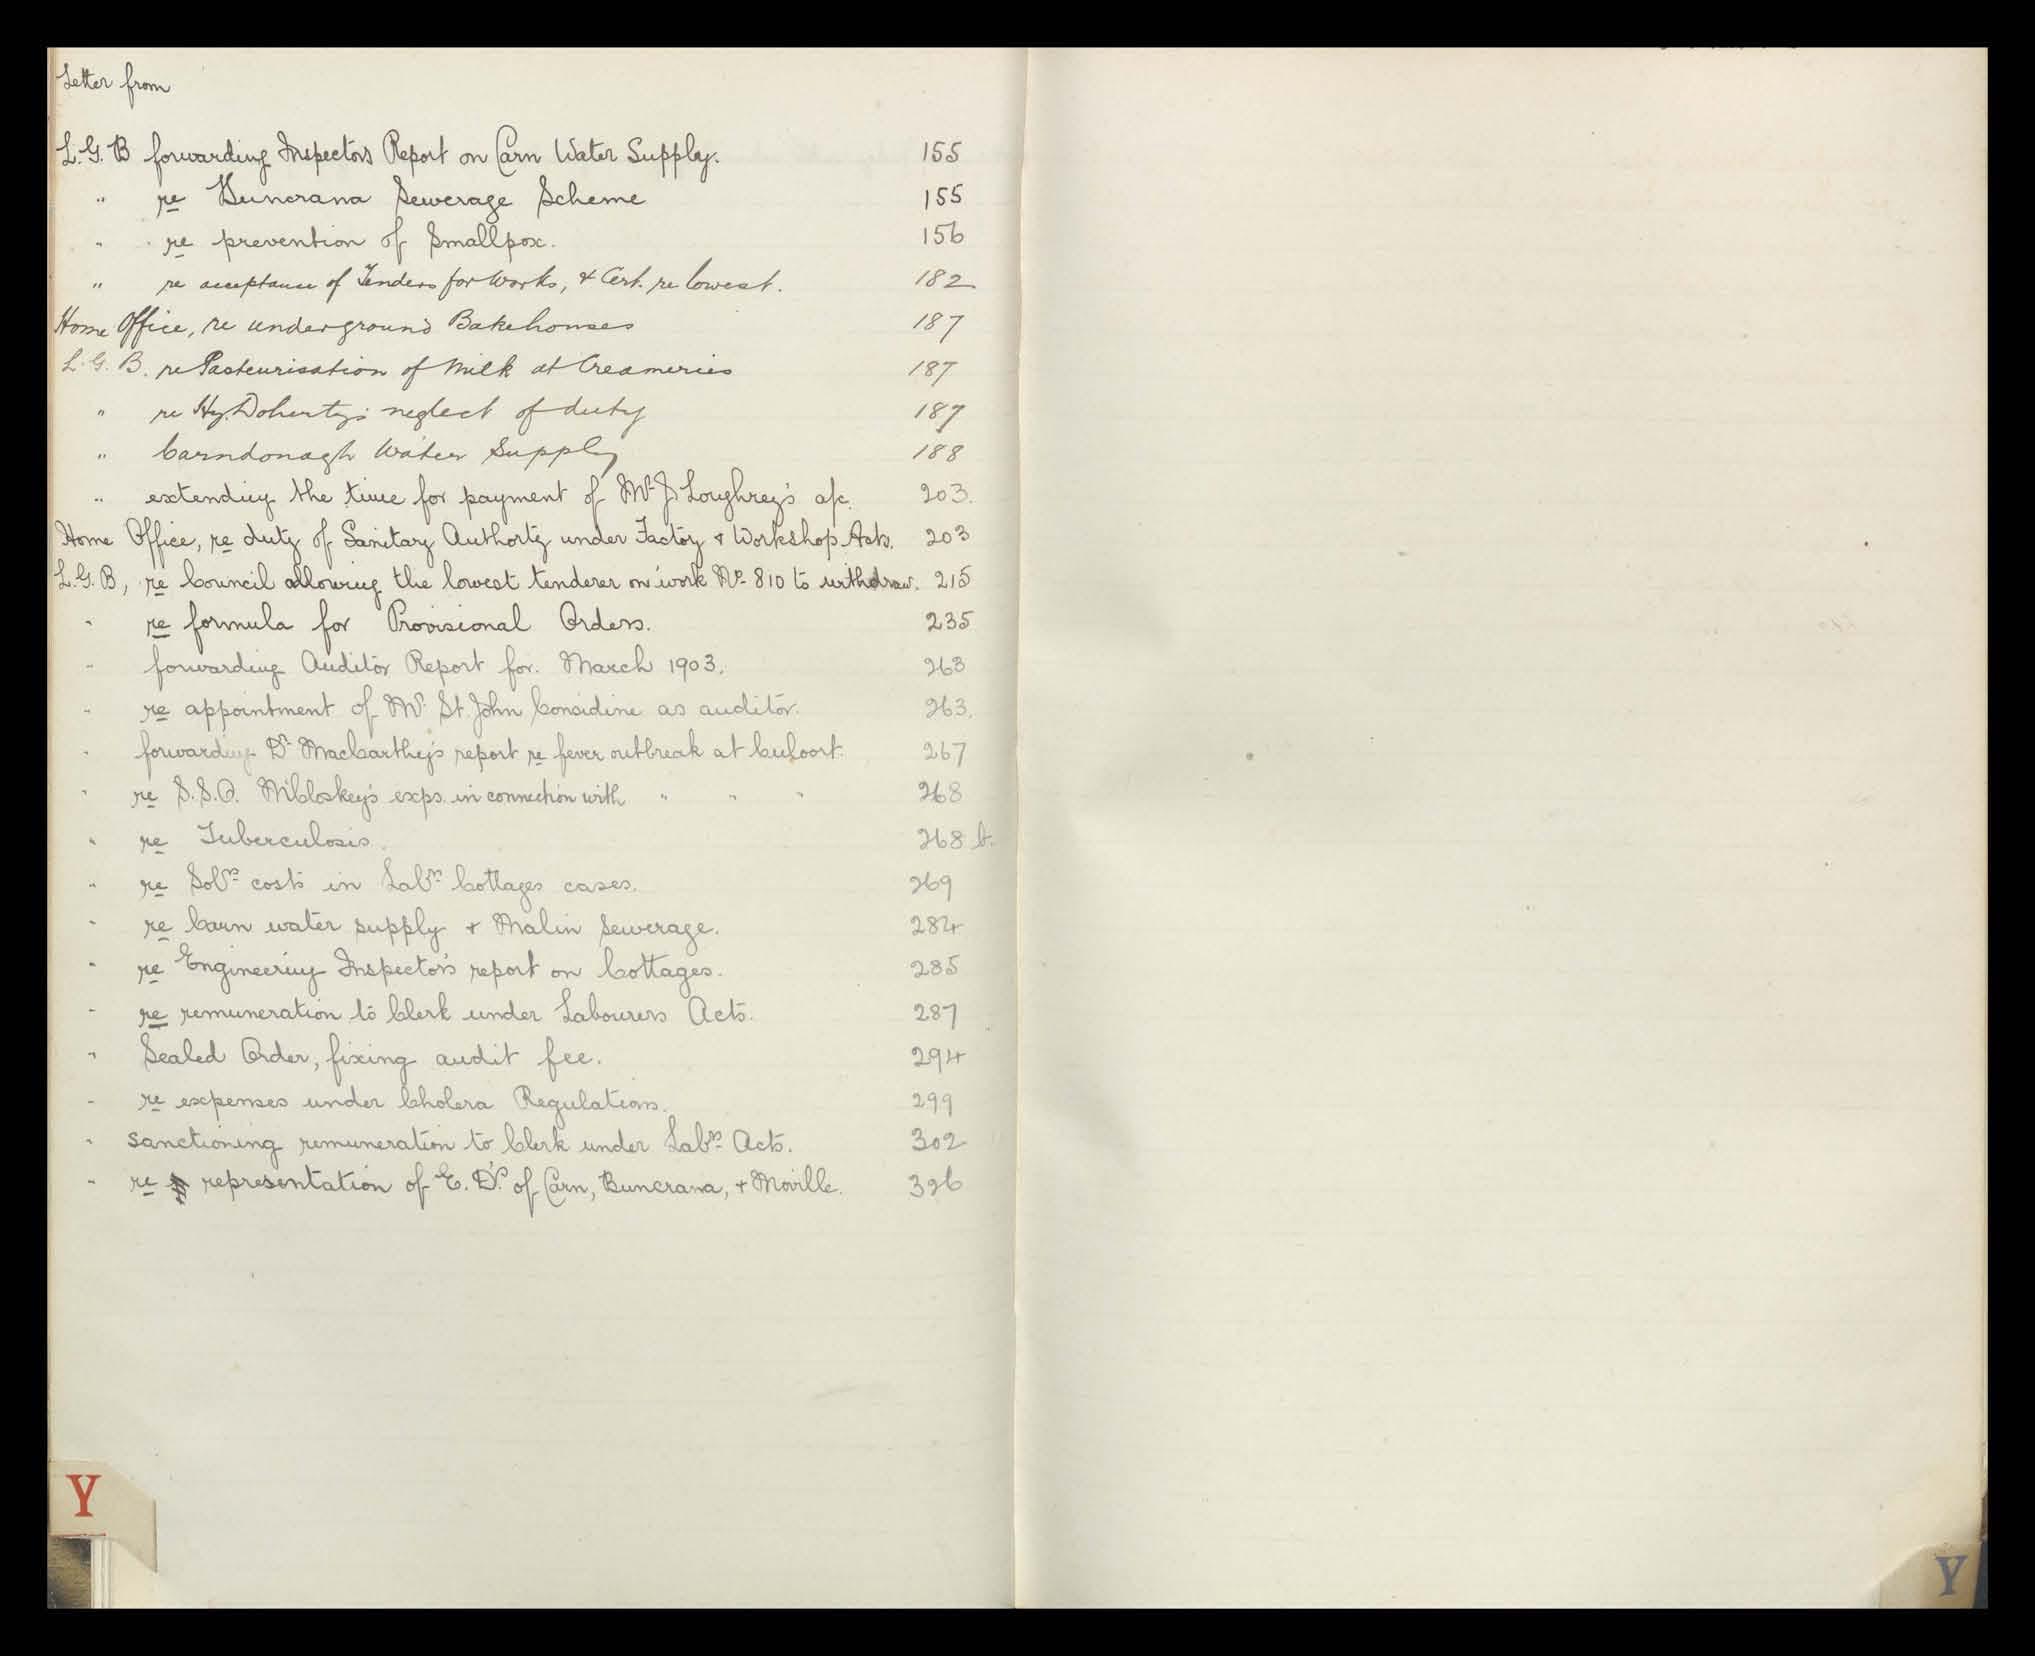 Letter from
L.G.B forwarding Inspectors Report on Carn Water Supply. 155
" re Buncrana Sewerage Scheme 155
" re prevention of Smallpox. 156
" re acceptance of Tenders for Works, & Cert. re lowest. 182
Home Office, re underground Bakehouses 187
L.G.B. re Pasteurisation of Milk at Creameries 187
" re Hy. Doherty's neglect of duty 187
" Carndonagh Water Supply 188
" extending the time for payment of Mr J Loughrey's a/c. 203.
Home Office, re duty of Sanitary Authorty under Factory & Workshop Acts. 203
L.G.B, re Council allowing the lowest tenderer on work No. 810 to withdraw. 215
" re formula for Provisional Orders. 235
" forwarding Auditor Report for. March 1903. 263
" re appointment of Mr. St. John Considine as auditor. 263.
" forwarding Dr. MacCarthy's report re fever outbreak at Culoort. 267
" re S.S.O. McCloskey's exps. in connection with " " " 268
" re Tuberculosis. 268 b.
" re Solrs costs in Labrs Cottages cases. 269
" re Carn water supply & Malin Sewerage. 284
" re Engineering Inspector's report on Cottages. 285
" re remuneration to Clerk under Labourers Acts. 287
" Sealed Order, fixing audit fee. 294
" re expenses under Cholera Regulations. 299
" sanctioning remuneration to Clerk under Labrs Acts. 302
" re representation of E. D's. of Carn, Buncrana, & Moville. 326
Y
Y